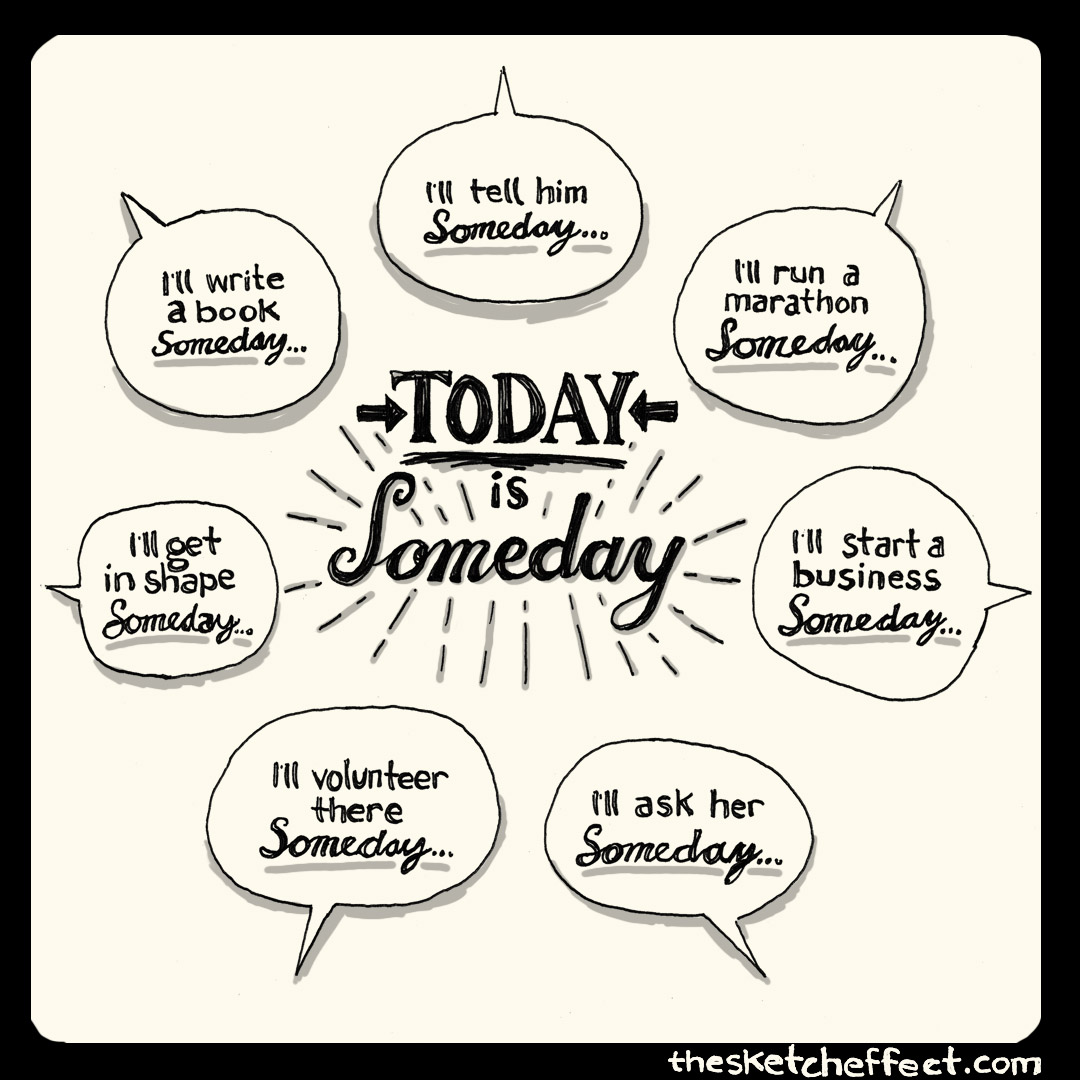 I'll tell him
Someday...
I'll write
a book
Someday...
I'll run a
marathon
Someday...
TODAY
is
Someday
I'll get
in shape
Someday...
I'll start a
business
Someday...
I'll volunteer
there
Someday...
I'll ask her
Someday...
thesketcheffect.com